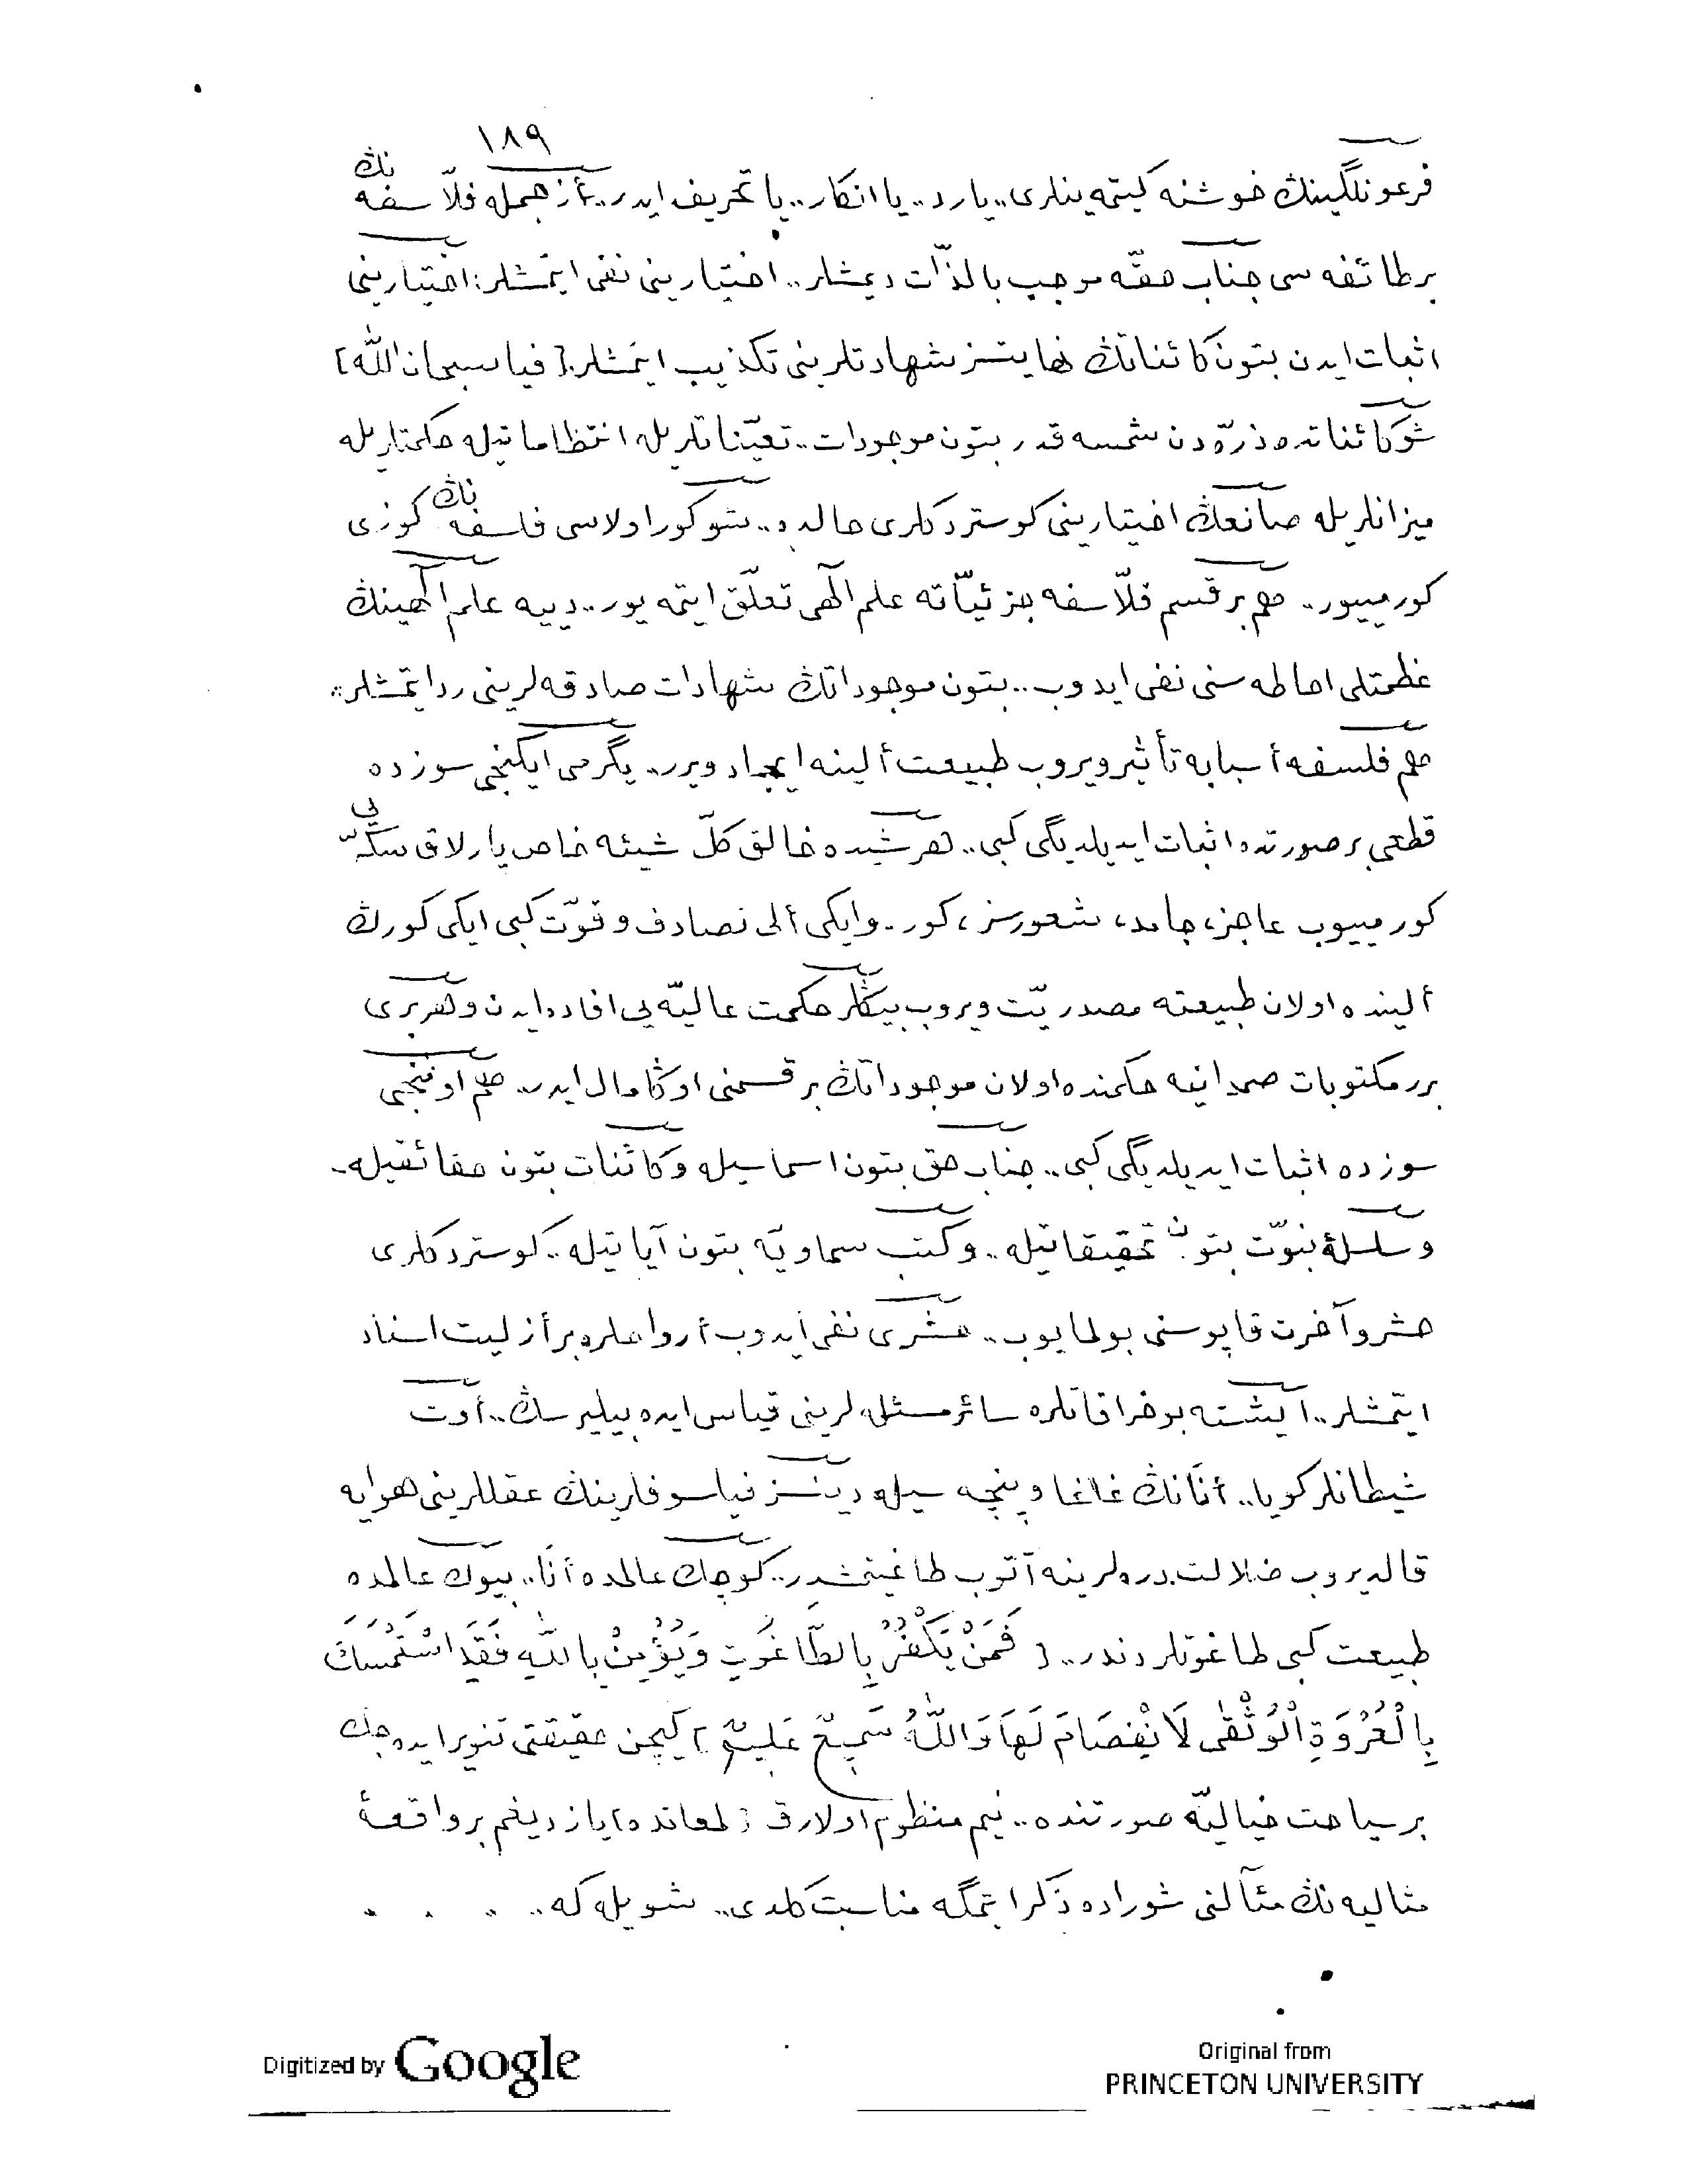 ١٨٩
فرعونلگینڭ خوشنه كیتمه ینلری.. یا رد.. یا انكار.. یا تحریف ایدر.. أز جمله فلاّسفه نڭ
بر طائفه سی جناب حقّه موجب بالذّات دیمشلر.. اختیارینی نفی ایتمشلر: اختیارینی
اثبات ایدن بتون كائناتڭ نهایتسز شهادتلرینی تكذیب ایتمشلر. [فیا سبحان الله]
شو كائناتده ذرّه دن شمسه قدر بتون موجودات.. تعیّناتلریله انتظاماتیله حكمتلریله
میزانلریله صانعڭ اختیارینی كوستردكلری حالده.. شو كور اولاسی فلسفه نڭ كوزی
كورمییور.. هم بر قسم فلاّسفه جزئیّاته علم الٓهی تعلّق ایتمه یور.. دییه علم الٓهینڭ
عظمتلی احاطه سنی نفی ایدوب.. بتون موجوداتڭ شهادات صادقه لرینی رد ایتمشلر..
هم فلسفه أسبابه تأثیر ویروب طبیعت ألینه ایجاد ویرر.. یگرمی ایكنجی سوزده
قطعی بر صورتده اثبات ایدیلدیگی كبی.. هر شیده خالق كلّ شیئه خاص پارلاق سكّه یی
كورمییوب عاجز، جامد، شعورسز، كور.. و ایكی ألی تصادف و قوّت كبی ایكی كورڭ
ألینده اولان طبیعته مصدریّت ویروب بیڭلر حكمت عالیّه یی افاده ایدن و هر بری
برر مكتوبات صمدانیه حكمنده اولان موجوداتڭ بر قسمنی اوڭا مال ایدر.. هم اوننجی
سوزده اثبات ایدیلدیگی كبی.. جناب حق بتون اسماسیله و كائنات بتون حقائقیله..
و سلسلۀ نبوّت بتون تحقیقاتیله.. و كتب سماویّه بتون آیاتیله.. كوستردكلری
حشر و آخرت قاپوسنی بولمایوب.. حشری نفی أیدوب أرواحلره بر أزلیت اسناد
ایتمشلر.. ایشته بو خرافاتلره سائر مسئله لرینی قیاس ایده بیلیرسڭ.. أوت
شیطانلر كویا.. أنَانڭ غاغا و پنچه سیله دینسز فیلسوفلرینڭ عقللرینی هوایه
قالدیروب ضلالت دره لرینه آتوب طاغیتمشدر.. كوچك عالمده أنَا.. بیوك عالمده
طبیعت كبی طاغوتلردندر.. [فَمَنْ یَكْفُرْ بِالطَّاغُوتِ وَیُؤْمِنْ بِاللّٰهِ فَقَدِ اسْتَمْسَكَ
بِالْعُرْوَةِ الْوُثْقٰى لَا انْفِصَامَ لَهَا وَاللّٰهُ سَمِیعٌ عَلِیمٌ] كیچن حقیقتی تنویر ایده جك
بر سیاحت خیالیّه صورتنده.. نیم منظوم اولارق [لمعاتده] یازدیغم بر واقعۀ
مثالیه نڭ مئآلنی شوراده ذكر ایتمگه مناسبت كلدی.. شویله كه.. .. . .
Digitized by Google
Original from
PRINCETON UNIVERSITY